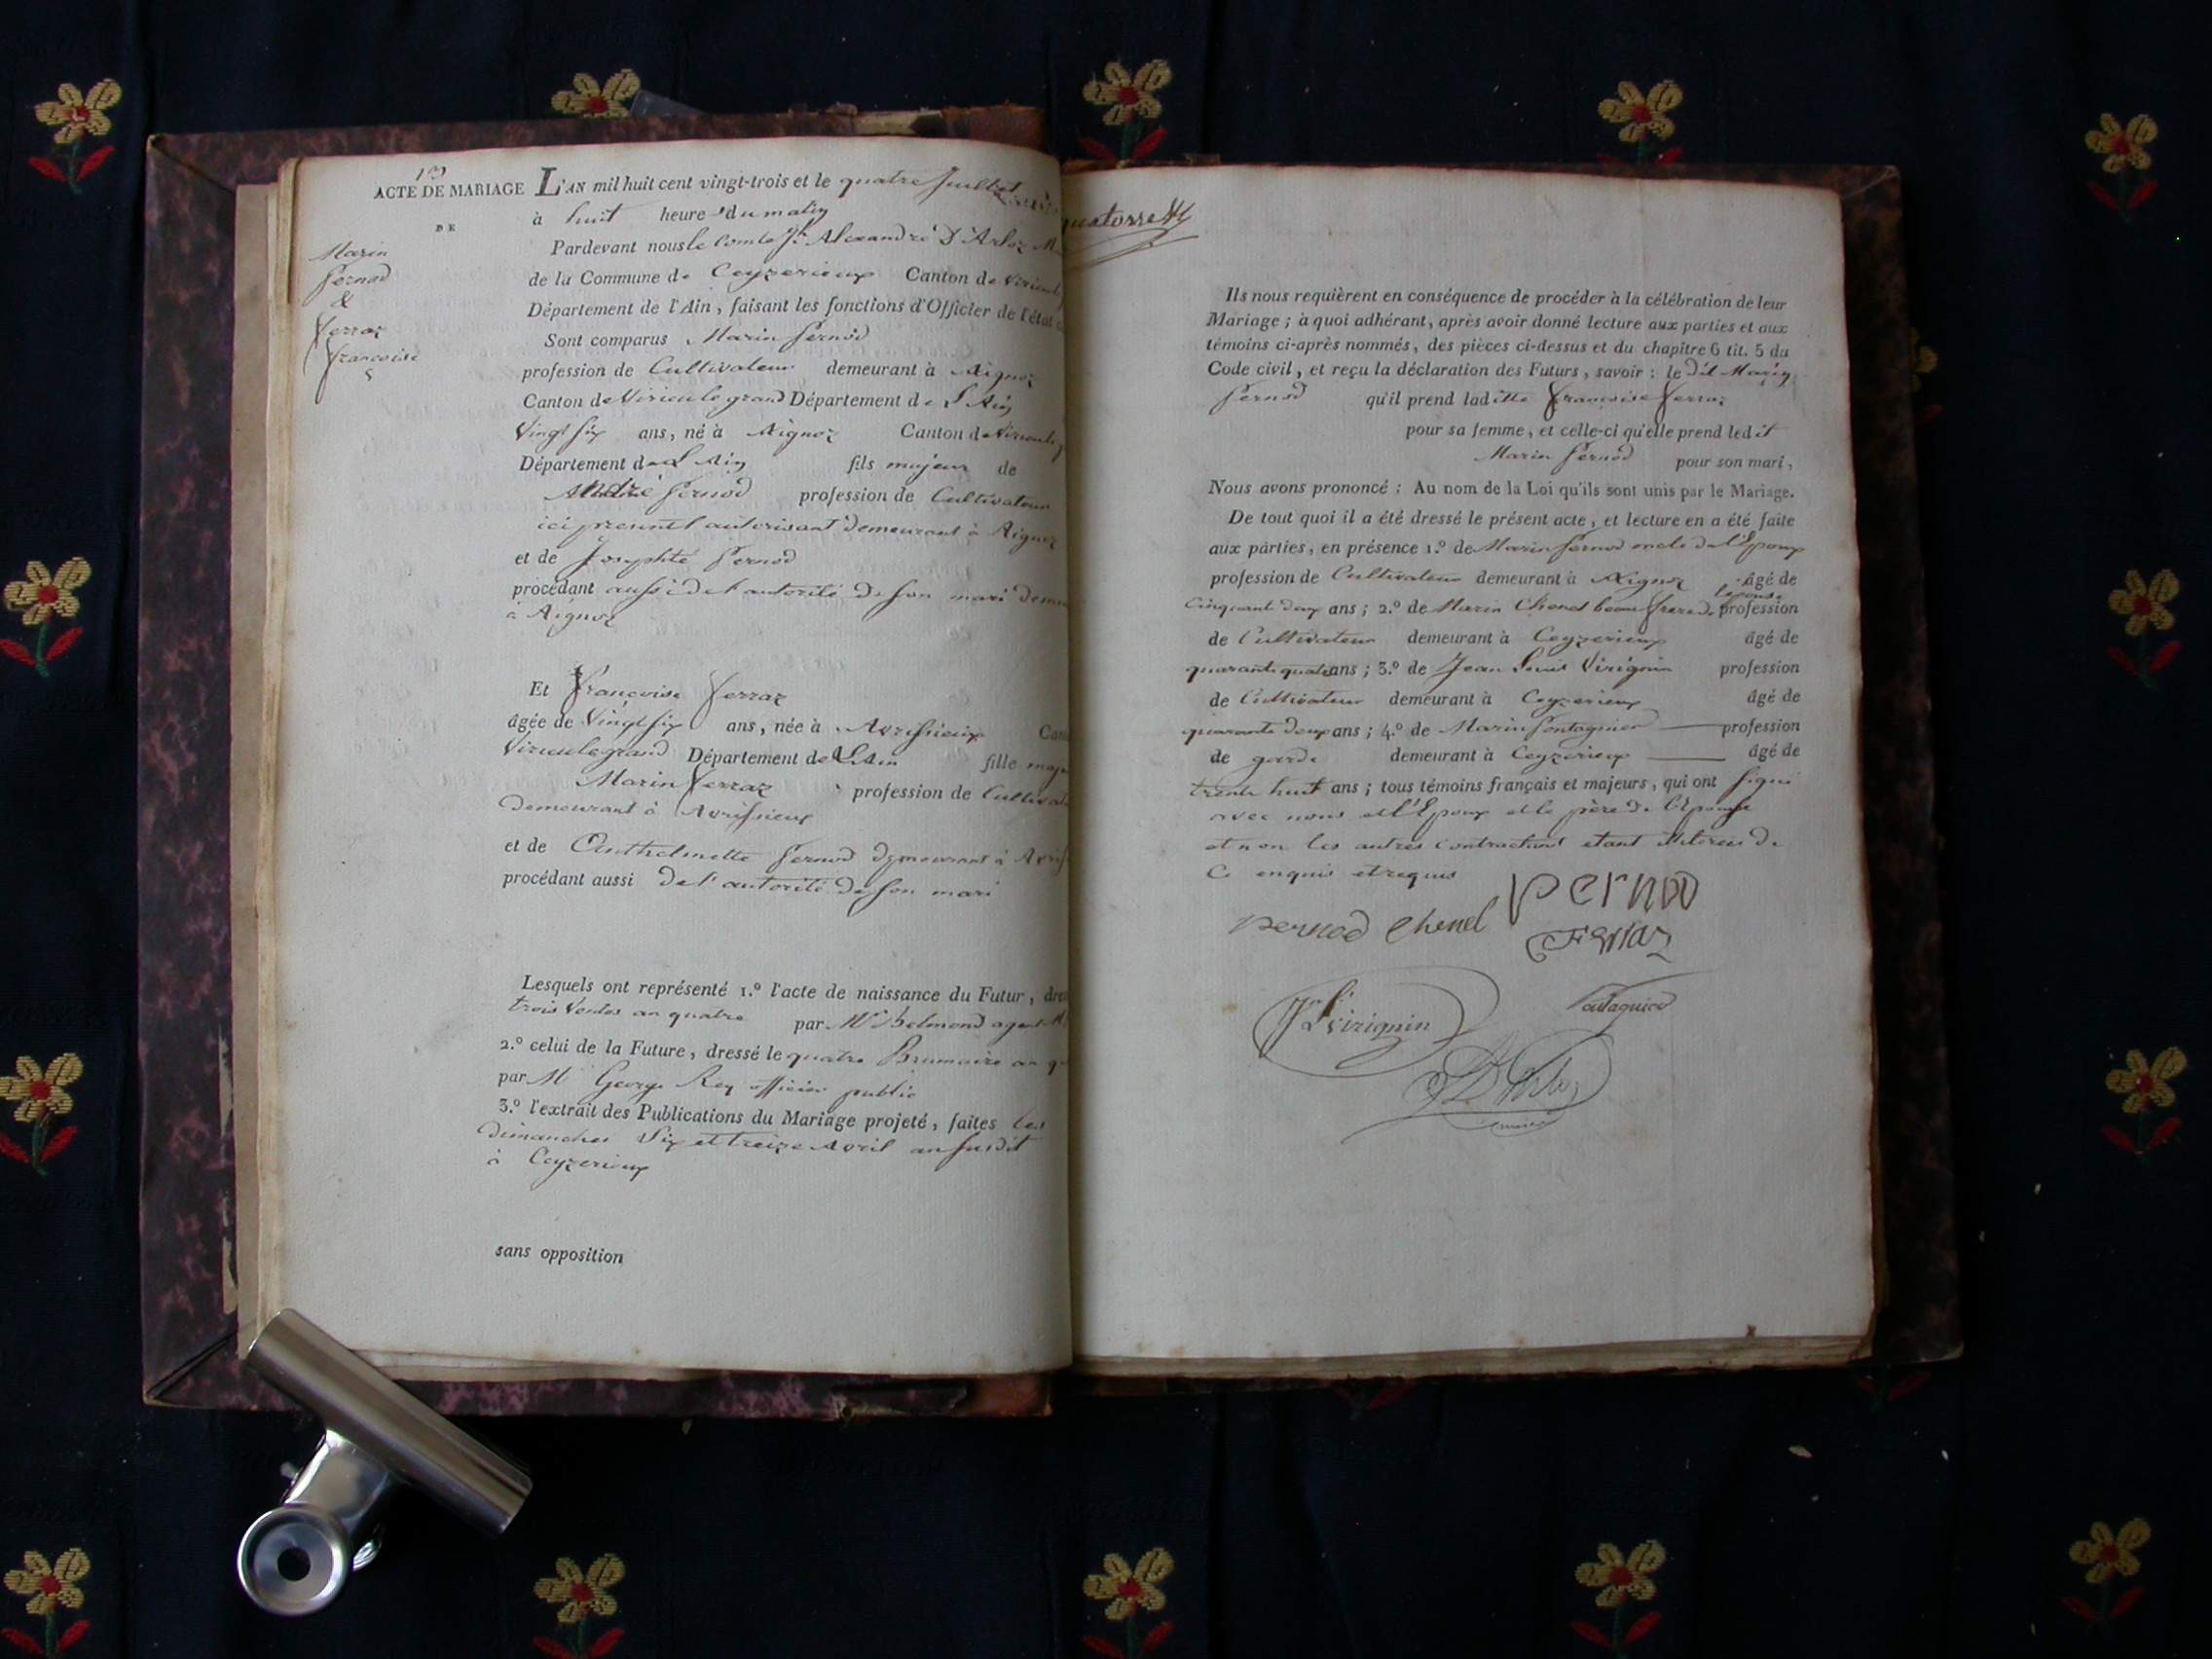 13
ACTE DE MARIAGE
DE
Marin
Pernod
&
Ferraz
françoise
L'AN mil huit cent vingt-trois et le quatre Juillet
à huit heures du matin
Pardevant nous le Comte Jh. Alexandre D'Arloz M
de la Commune de Ceyzerieux Canton de Virieule
Département de l'Ain, faisant les fonctions d'Officier de l'état
Sont comparus Marin Pernod
profession de Cultivateur demeurant à Aignoz
Canton de Virieu le grand Département de L'Ain
Vingt six ans, né à Aignoz Canton de Virieule
Département de L'Ain fils majeur de
André Pernod profession de Cultivateur
ici present autorisant demeurant à Aignoz
et de Josephte Pernod
procédant aussi de l'autorité de son mari dem
à Aignoz
Et françoise ferraz
âgée de Vingt six ans, née à Avrissieux Can
Virieulegrand Département de L'Ain fille maj
Marin ferraz profession de Cultivat
demeurant à Avrissieux
et de Anthelmette Pernod demeurant à Avris
procédant aussi de l'autorité de son mari
Lesquels ont représenté 1.º l'acte de naissance du Futur, dre
trois Ventos an quatre par Mr Belmond agent M
2.º celui de la Future, dressé le quatre Brumaire an q
par Mr George Rey officier public
3.º l'extrait des Publications du Mariage projeté, faites les
dimanches Six et treize Avril an susdit
à Ceyzerieux
sans opposition
quatorze
Ils nous requièrent en conséquence de procéder à la célébration de leur
Mariage ; à quoi adhérant, après avoir donné lecture aux parties et aux
témoins ci-après nommés, des pièces ci-dessus et du chapitre 6 tit. 5 du
Code civil, et reçu la déclaration des Futurs, savoir : le dit Marin
Pernod qu'il prend laditte françoise ferraz
pour sa femme, et celle-ci qu'elle prend ledit
Marin Pernod pour son mari,
Nous avons prononcé : Au nom de la Loi qu'ils sont unis par le Mariage.
De tout quoi il a été dressé le présent acte, et lecture en a été faite
aux parties, en présence 1.º de Marin Pernod oncle de l'Epoux
profession de Cultivateur demeurant à Aignoz âgé de
Cinquante deux ans ; 2.º de Marin Chenel beau frere de l'epouse profession
de Cultivateur demeurant à Ceyzerieux âgé de
quarante quatre ans ; 3.º de Jean Louis Virignin profession
de Cultivateur demeurant à Ceyzerieux âgé de
quarante deux ans ; 4.º de Marin Pontagnier profession
de garde demeurant à Ceyzerieux âgé de
trente huit ans ; tous témoins français et majeurs, qui ont signé
avec nous et l'Epoux et le père de l'Epouse
et non les autres contractans etant illiterés de
ce enquis et requis
pernod Chenel Pernod
Ferraz
Jn Ls Virignin